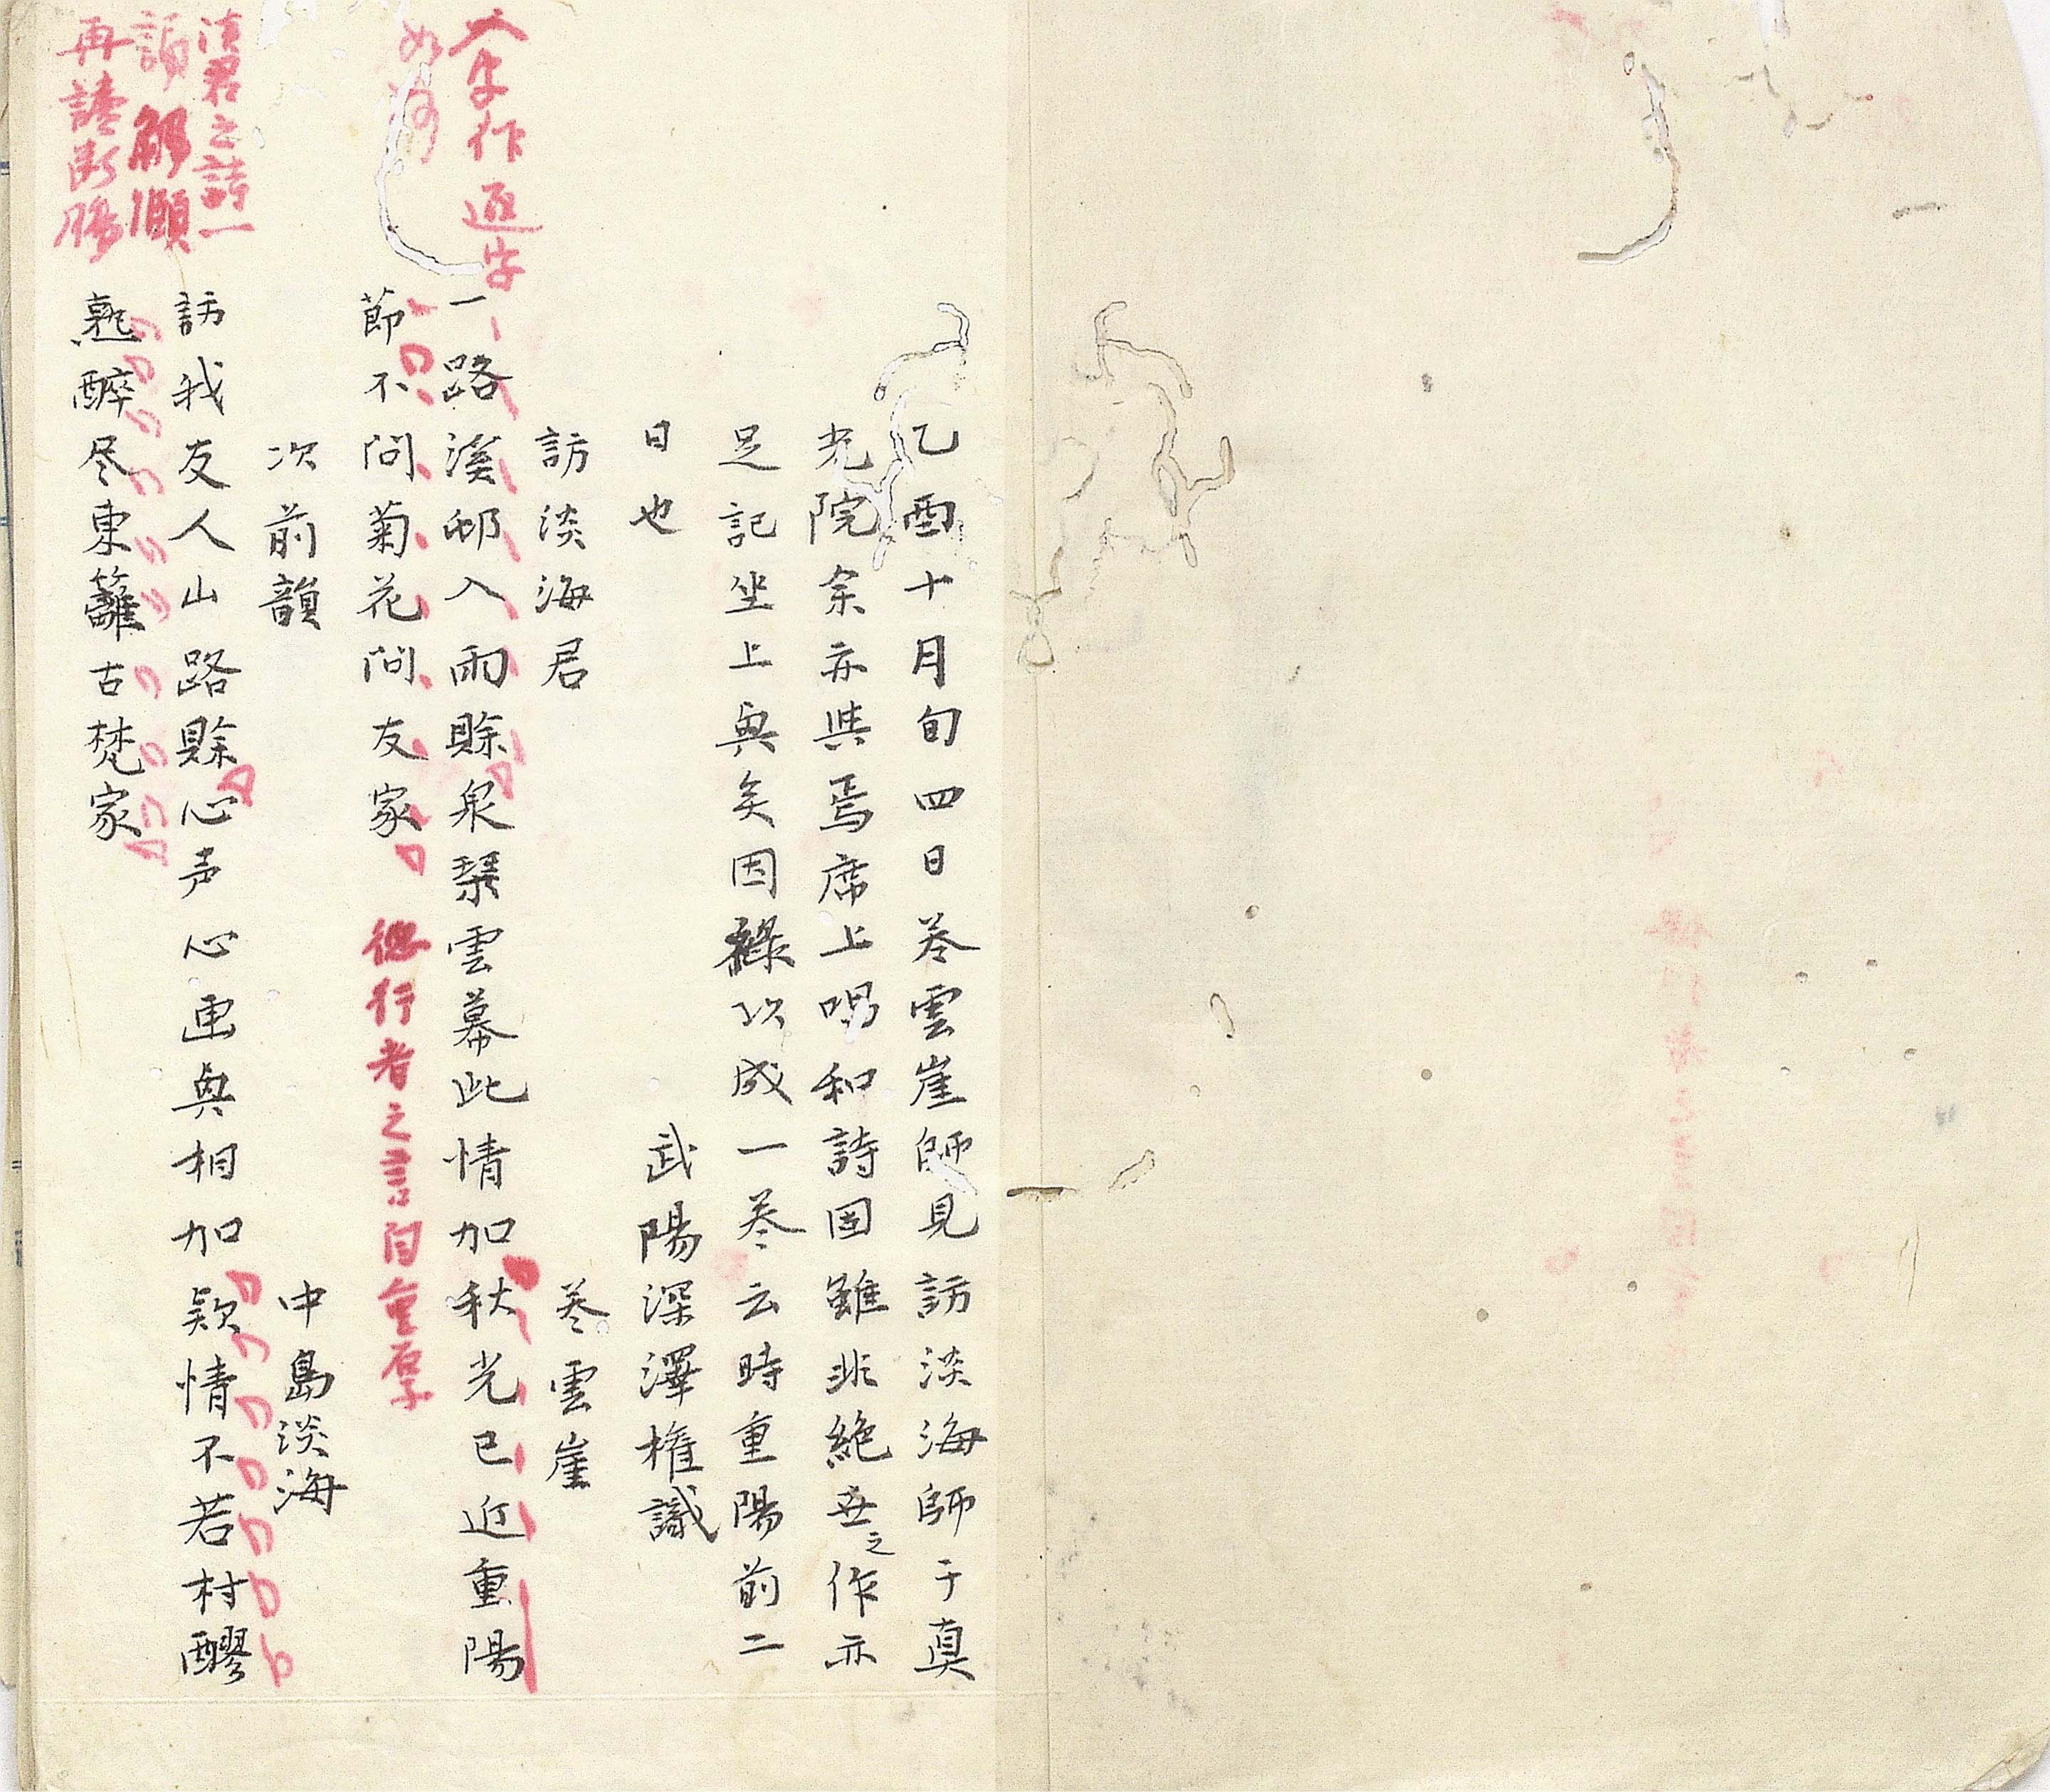 乙酉十月旬四日巻雲崖師見訪淡海師于真
光院余亦與焉席上唱和詩固雖非絶世之作亦
足記坐上興矣因録以成一巻云時重陽前二
日也
武陽深澤権識
訪淡海君
巻雲崖
入字作逕字
如何
一路溪邨入雨賖泉琹雲幕此情加秋光已近重陽
節不問菊花問友家
徳行者之言自重厚
次前韻
中島淡海
淡君之詩一
讀解頤
再讀断腸
訪我友人山路賖心声心画興相加欵情不若村醪
熟醉尽東籬古梵家